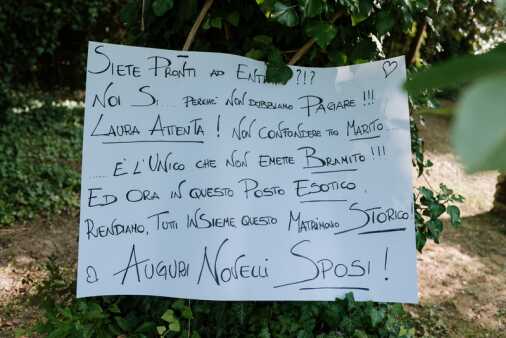 SIETE PRONTI AD ENTRARE ?!?
NOI SI .... PERCHÈ NON DOBBIAMO PAGARE !!!
LAURA ATTENTA ! NON CONFONDERE TUO MARITO ...
.... È L'UNICO CHE NON EMETTE BRAMITO !!!
ED ORA IN QUESTO POSTO ESOTICO,
RENDIAMO, TUTTI INSIEME, QUESTO MATRIMONIO STORICO!
AUGURI NOVELLI SPOSI !